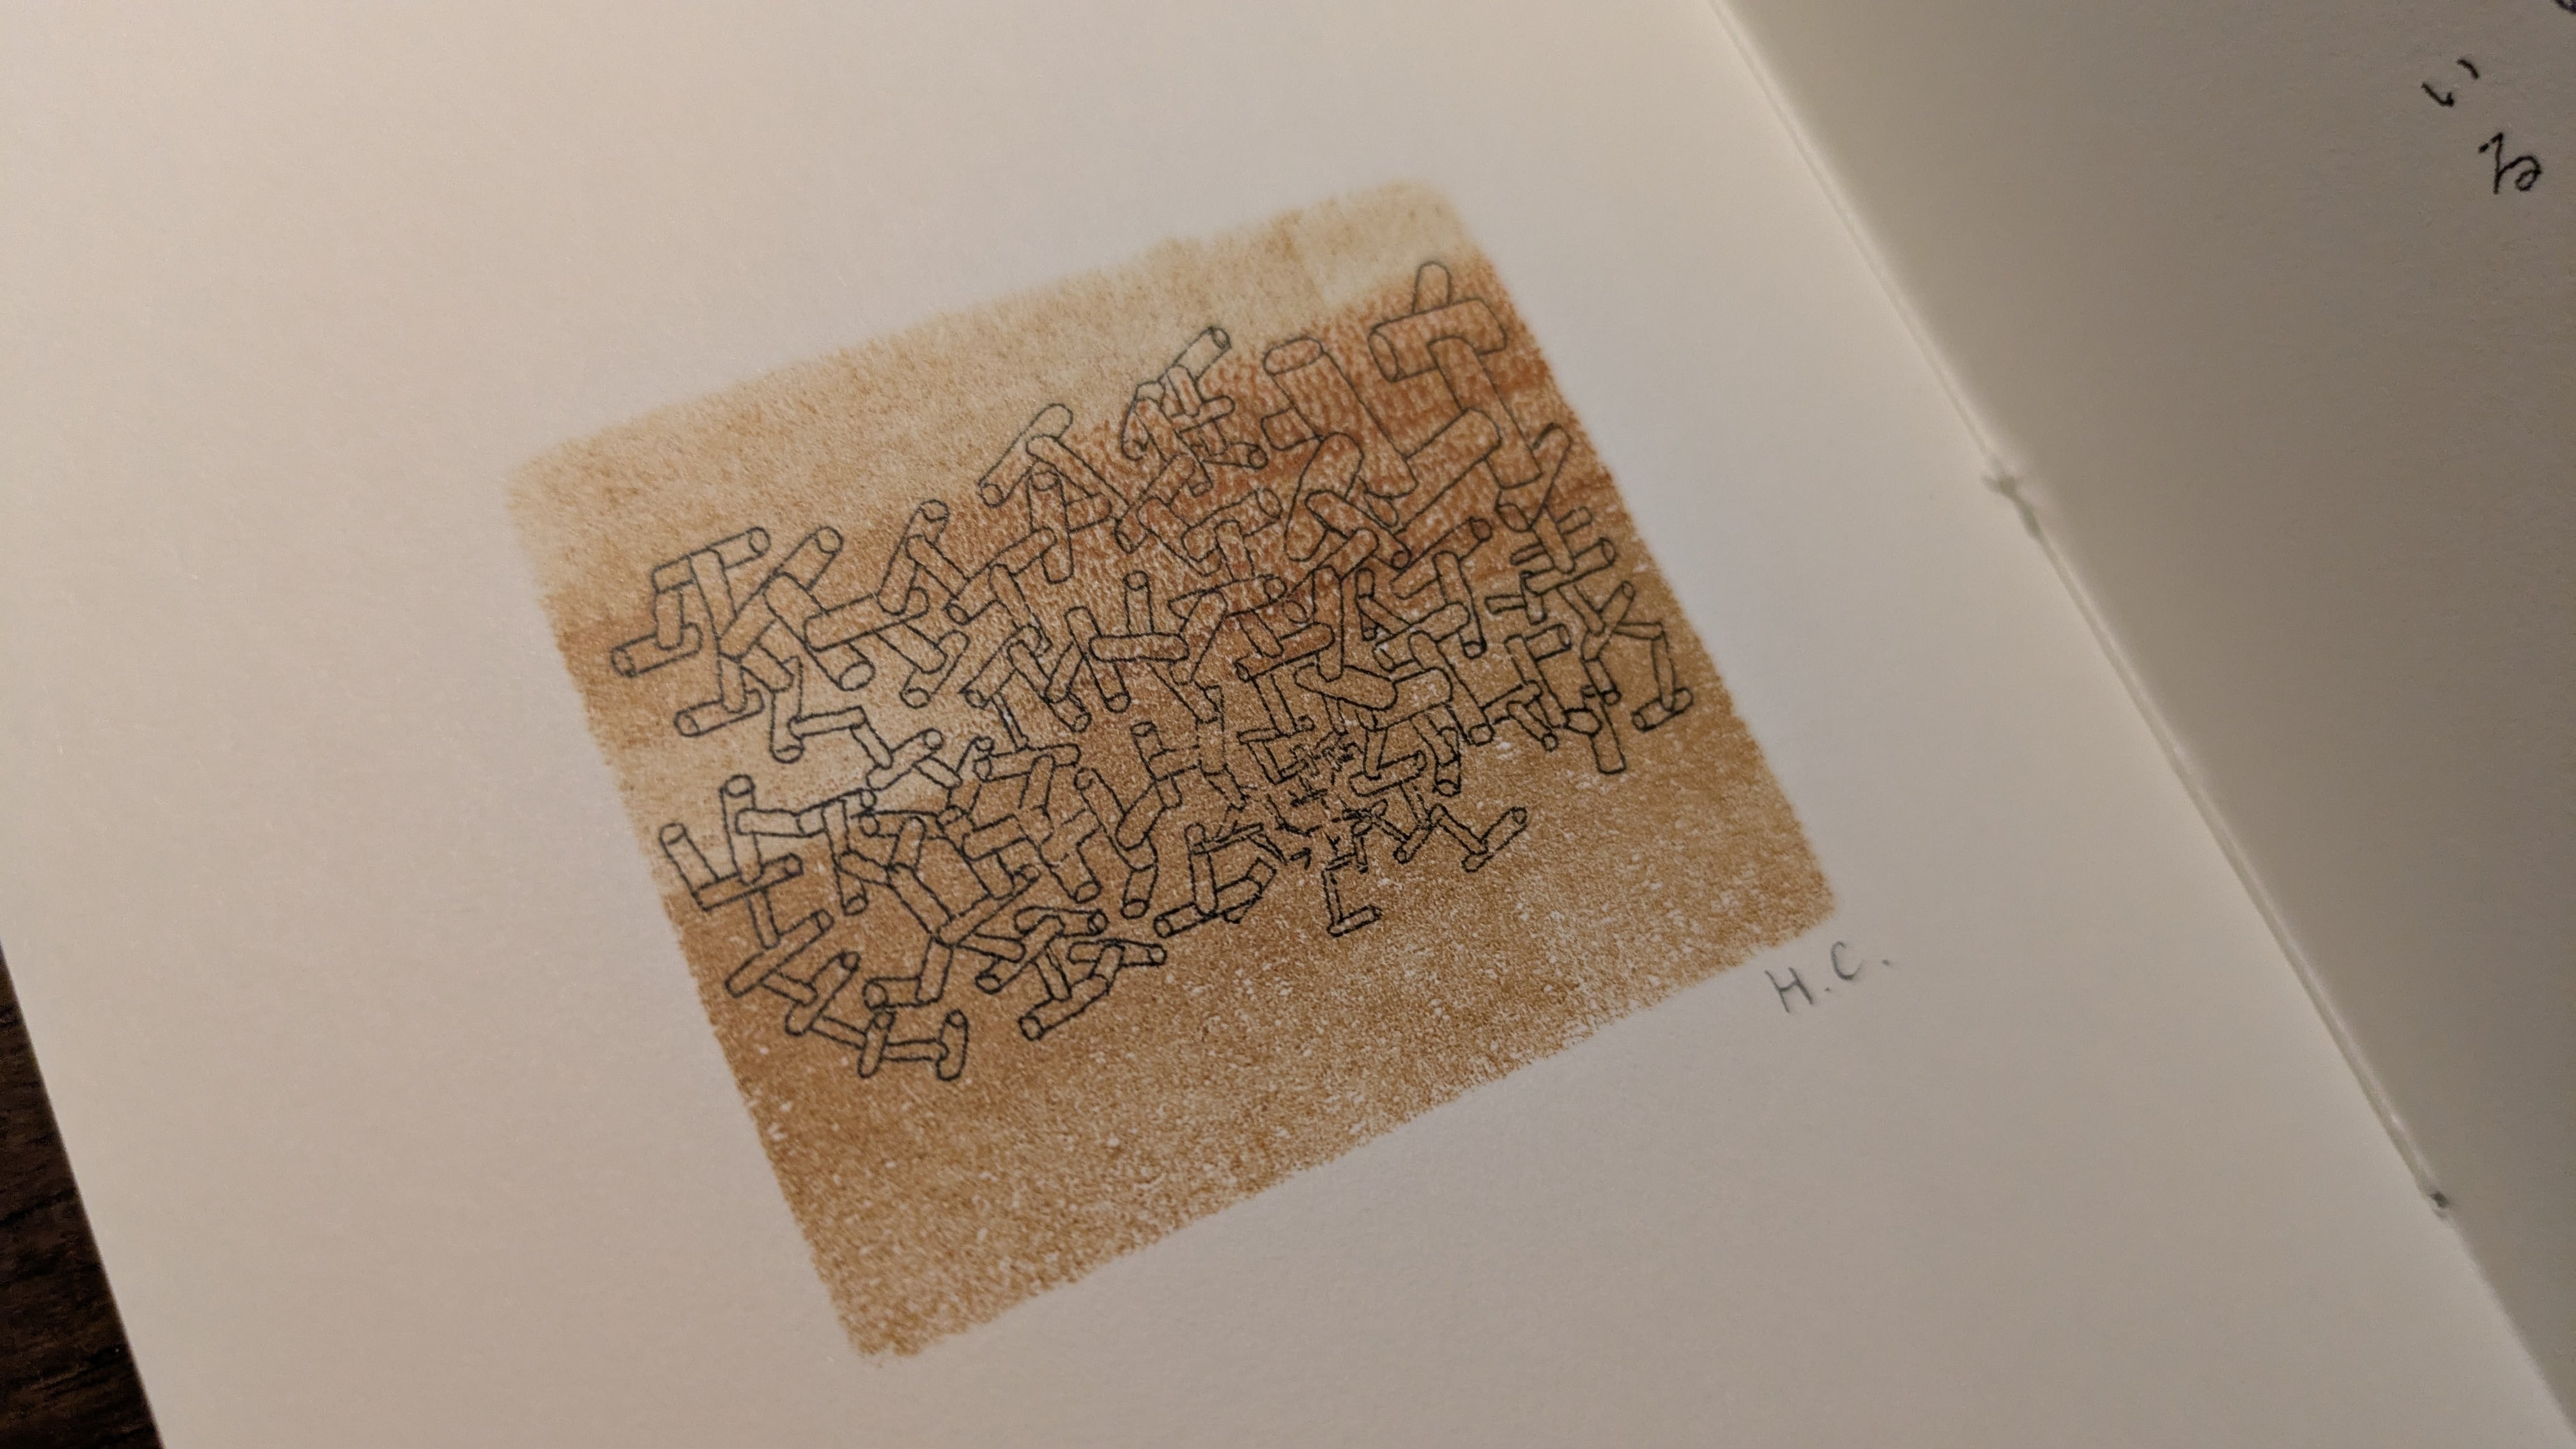 いる
H.C.